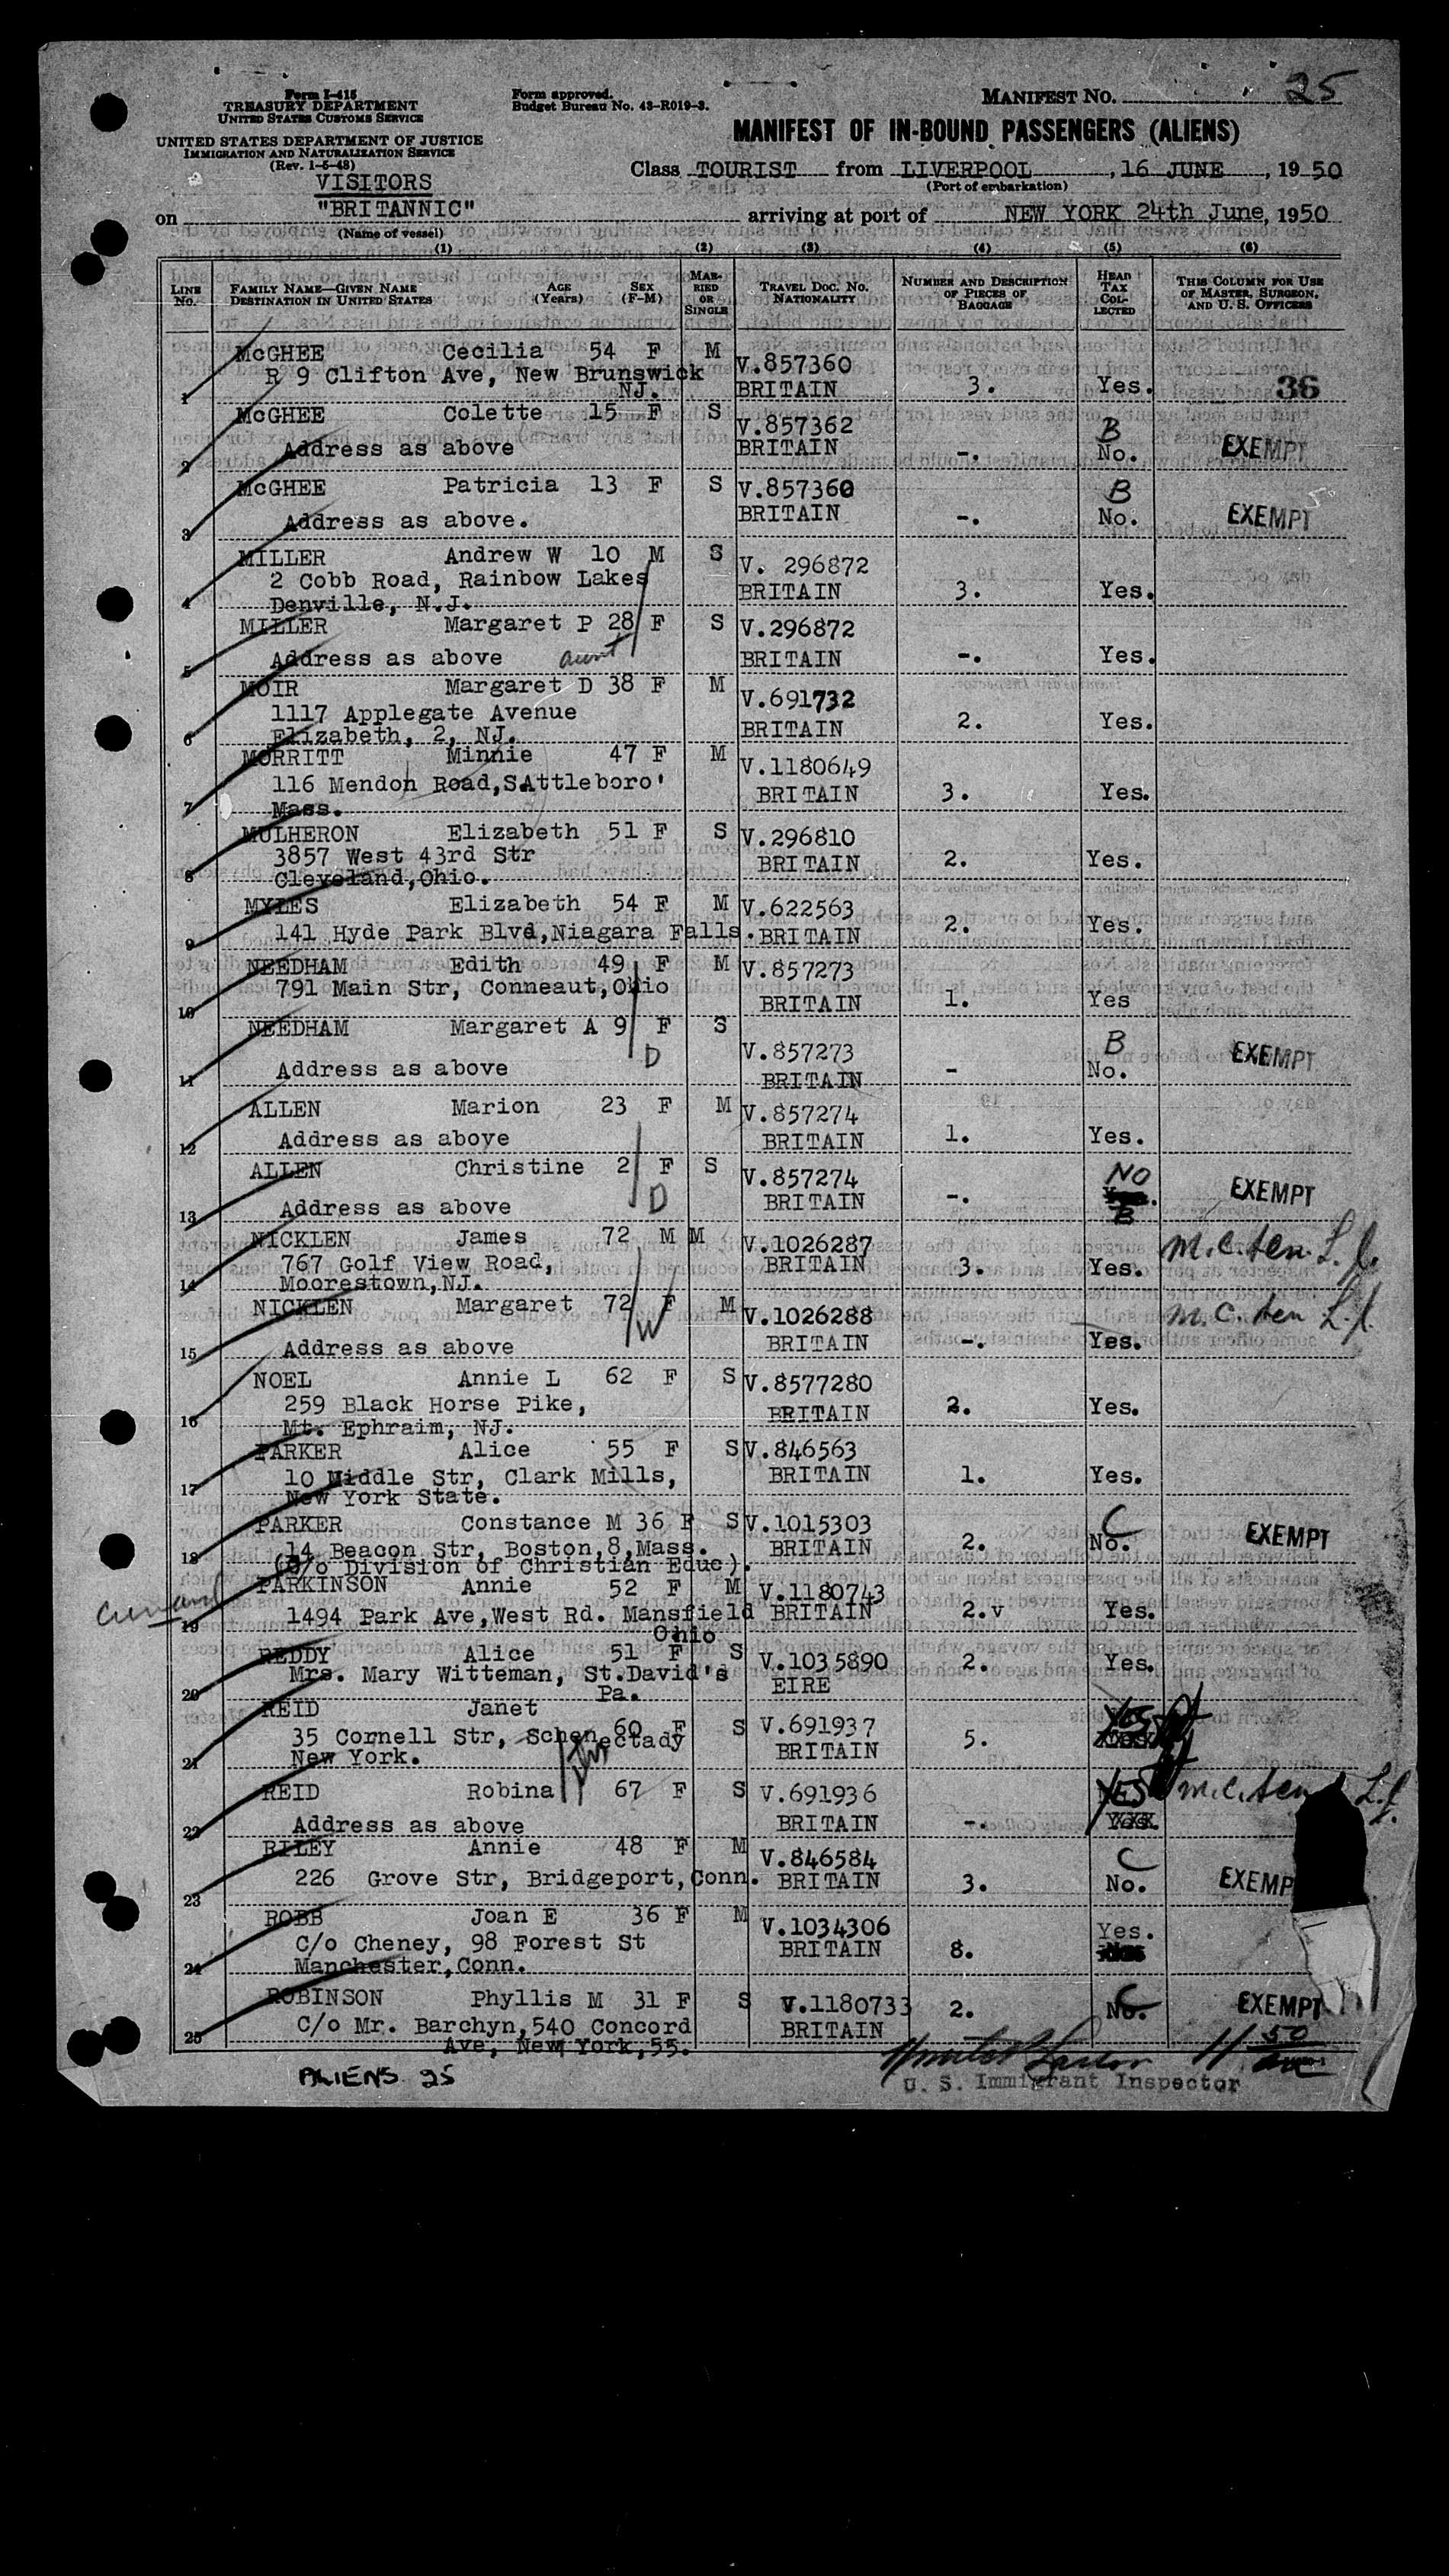 Form I-415
TREASURY DEPARTMENT
UNITED STATES CUSTOMS SERVICE
UNITED STATES DEPARTMENT OF JUSTICE
IMMIGRATION AND NATURALIZATION SERVICE
(Rev. 1-5-48)
Form approved.
Budget Bureau No. 43-R019-3.
MANIFEST NO. 25
MANIFEST OF IN-BOUND PASSENGERS (ALIENS)
Class TOURIST from LIVERPOOL, 16 JUNE, 1950
(Port of embarkation)
VISITORS
on "BRITANNIC" arriving at port of NEW YORK 24th June, 1950
(Name of vessel)
(1) (2) (3) (4) (5) (6)
LINE No.
FAMILY NAME—GIVEN NAME
DESTINATION IN UNITED STATES
AGE (Years)
SEX (F-M)
MARRIED OR SINGLE
TRAVEL DOC. NO.
NATIONALITY
NUMBER AND DESCRIPTION OF PIECES OF BAGGAGE
HEAD TAX COLLECTED
THIS COLUMN FOR USE OF MASTER, SURGEON, AND U. S. OFFICERS
36
1 McGHEE Cecilia 54 F M V.857360
R 9 Clifton Ave, New Brunswick NJ. BRITAIN 3. Yes.
2 McGHEE Colette 15 F S V.857362 B
Address as above BRITAIN -. No. EXEMPT
3 McGHEE Patricia 13 F S V.857360 B
Address as above. BRITAIN -. No. EXEMPT
4 MILLER Andrew W 10 M S V. 296872
2 Cobb Road, Rainbow Lakes BRITAIN 3. Yes.
Denville, N.J.
5 MILLER Margaret P 28 F S V.296872
Address as above aunt BRITAIN -. Yes.
6 MOIR Margaret D 38 F M V.691732
1117 Applegate Avenue BRITAIN 2. Yes.
Elizabeth, 2, NJ.
7 MORRITT Minnie 47 F M V.1180649
116 Mendon Road,S.Attleboro' BRITAIN 3. Yes.
Mass.
8 MULHERON Elizabeth 51 F S V.296810
3857 West 43rd Str BRITAIN 2. Yes.
Cleveland,Ohio.
9 MYLES Elizabeth 54 F M V.622563
141 Hyde Park Blvd,Niagara Falls. BRITAIN 2. Yes.
10 NEEDHAM Edith 49 F M V.857273
791 Main Str, Conneaut,Ohio BRITAIN 1. Yes
11 NEEDHAM Margaret A 9 F S V.857273 B
D
Address as above BRITAIN - No. EXEMPT
12 ALLEN Marion 23 F M V.857274
Address as above BRITAIN 1. Yes.
13 ALLEN Christine 2 F S V.857274 NO
D
Address as above BRITAIN -. B EXEMPT
14 NICKLEN James 72 M M V.1026287
767 Golf View Road, BRITAIN 3. Yes. m.c. sen.
Moorestown,NJ.
15 NICKLEN Margaret 72 F M V.1026288 m.c. sen
W
Address as above BRITAIN -. Yes.
16 NOEL Annie L 62 F S V.8577280
259 Black Horse Pike, BRITAIN 2. Yes.
Mt. Ephraim, NJ.
17 PARKER Alice 55 F S V.846563
10 Middle Str, Clark Mills, BRITAIN 1. Yes.
New York State.
18 PARKER Constance M 36 F S V.1015303 C
14 Beacon Str, Boston,8,Mass. BRITAIN 2. No. EXEMPT
(C/o Division of Christian Educ).
19 PARKINSON Annie 52 F M V.1180743
1494 Park Ave,West Rd. Mansfield BRITAIN 2.v Yes.
Ohio
20 REDDY Alice 51 F S V.1035890 2. Yes.
Mrs. Mary Witteman, St.David's EIRE
Pa.
21 REID Janet 60 F S V.691937
35 Cornell Str, Schenectady BRITAIN 5. YES
New York.
22 REID Robina 67 F S V.691936 YES m.c. sen
Address as above BRITAIN -.
23 RILEY Annie 48 F M V.846584 C
226 Grove Str, Bridgeport,Conn. BRITAIN 3. No. EXEMP
24 ROBB Joan E 36 F M V.1034306 Yes.
C/o Cheney, 98 Forest St BRITAIN 8.
Manchester,Conn.
25 ROBINSON Phyllis M 31 F S V.1180733 2. No. C EXEMPT
C/o Mr. Barchyn,540 Concord BRITAIN
Ave, New York,55.
ALIENS 25
U. S. Immigrant Inspector